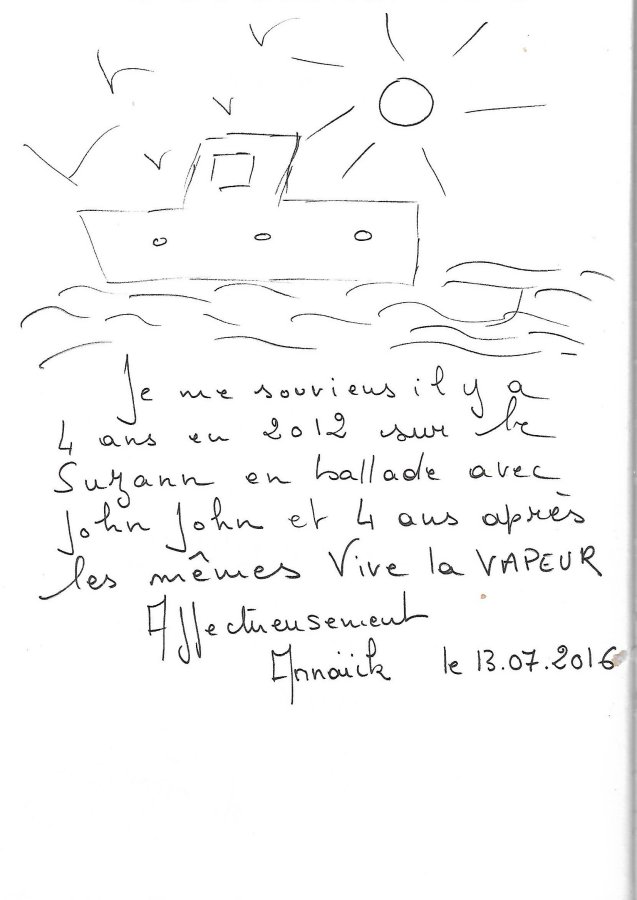 Je me souviens il y a
4 ans en 2012 sur le
Suzann en ballade avec
John John et 4 ans après
les mêmes Vive la VAPEUR
Affectueusement
Annaïck le 13.07.2016